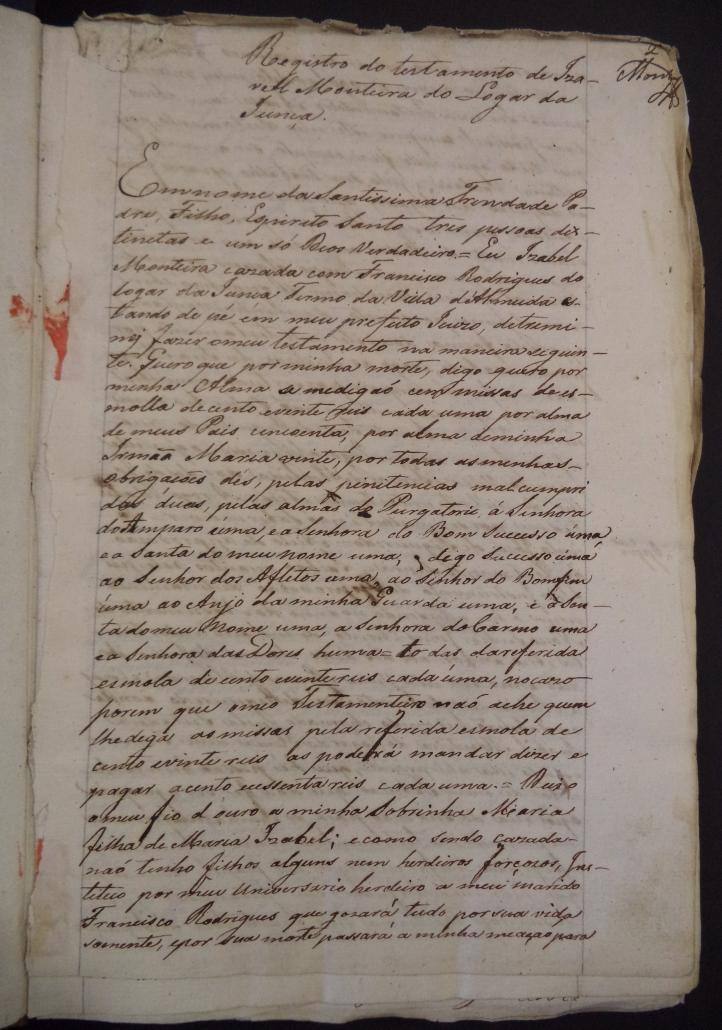 Registro do testamento de Iza-
vell Monteira do Logar da
Junça.
Em nome da Santissima Trindade Pa-
dre, Filho, Espirito Santo tres pessoas dis-
tinctas e um só Deos Verdadeiro = Eu Izabel
Monteira cazada com Francisco Rodrigues do
logar da Junca Termo da Villa d'Almeida es-
tando de pé em meu prefeito Juizo, detremi-
nej fazer o meu testamento na maneira seguin-
te. Quero que por minha morte, digo quero por
minha Alma se me digaõ cem missas de es-
molla de cento e vinte reis cada uma por alma
de meus Pais cincoenta, por alma de minha
Irmãa Maria vinte, por todas as minhas
obrigações dés, pelas penitencias mal cumpri
das duas, pelas almas do Purgatorio, á Senhora
do Amparo uma, e a Senhora do Bom Sucesso uma
e a Santa do meu nome uma, digo Sucesso uma
ao Senhor dos Afletos uma, ao Senhor do Bomfim
uma ao Anjo da minha Guarda uma, e á San-
ta do meu Nome uma, a Senhora do Carmo uma
e a Senhora das Dores huma = todas da referida
esmola de cento e vinte reis cada uma, no cazo
porem que o meu Testamenteiro naõ ache quem
lhe dega as missas pela referida esmola de
cento e vinte reis as poderá mandar dizer e
pagar a cento e sessenta reis cada uma. = Deixo
o meu fio d'ouro a minha Sobrinha Maria
filha de Maria Izabel; e como sendo cazada
naõ tenho filhos alguns nem herdieros forçozos, Ins-
tituo por meu Universario herdeiro a meu marido
Francisco Rodrigues que gozará tudo por sua vida
somente, e por sua morte passará a minha meação para